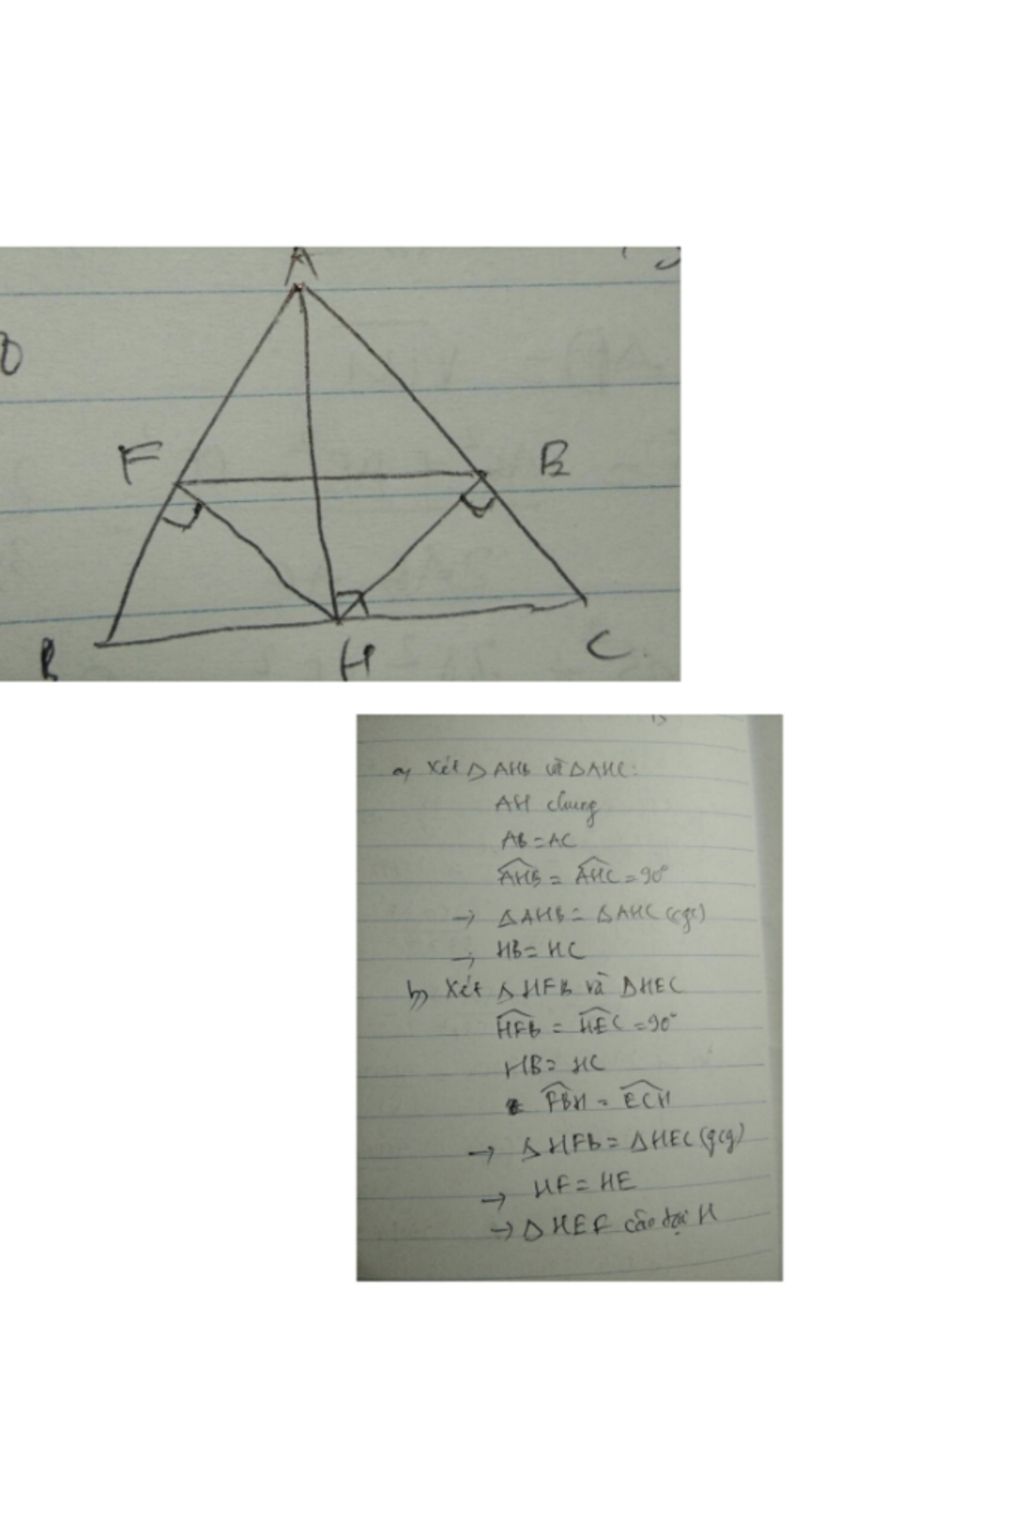 A
F
E
B
H
C
a, Xét △ AHB và △AHC:
AH chung
AB = AC
∠AHB = ∠AHC = 90°
→ △AHB = △AHC (cgc)
→ HB = HC
b, Xét △ HFB và △HEC
∠HFB = ∠HEC = 90°
HB = HC
∠FBH = ∠ECH
→ △ HFB = △HEC (gcg)
→ HF = HE
→ △ HEF cân tại H